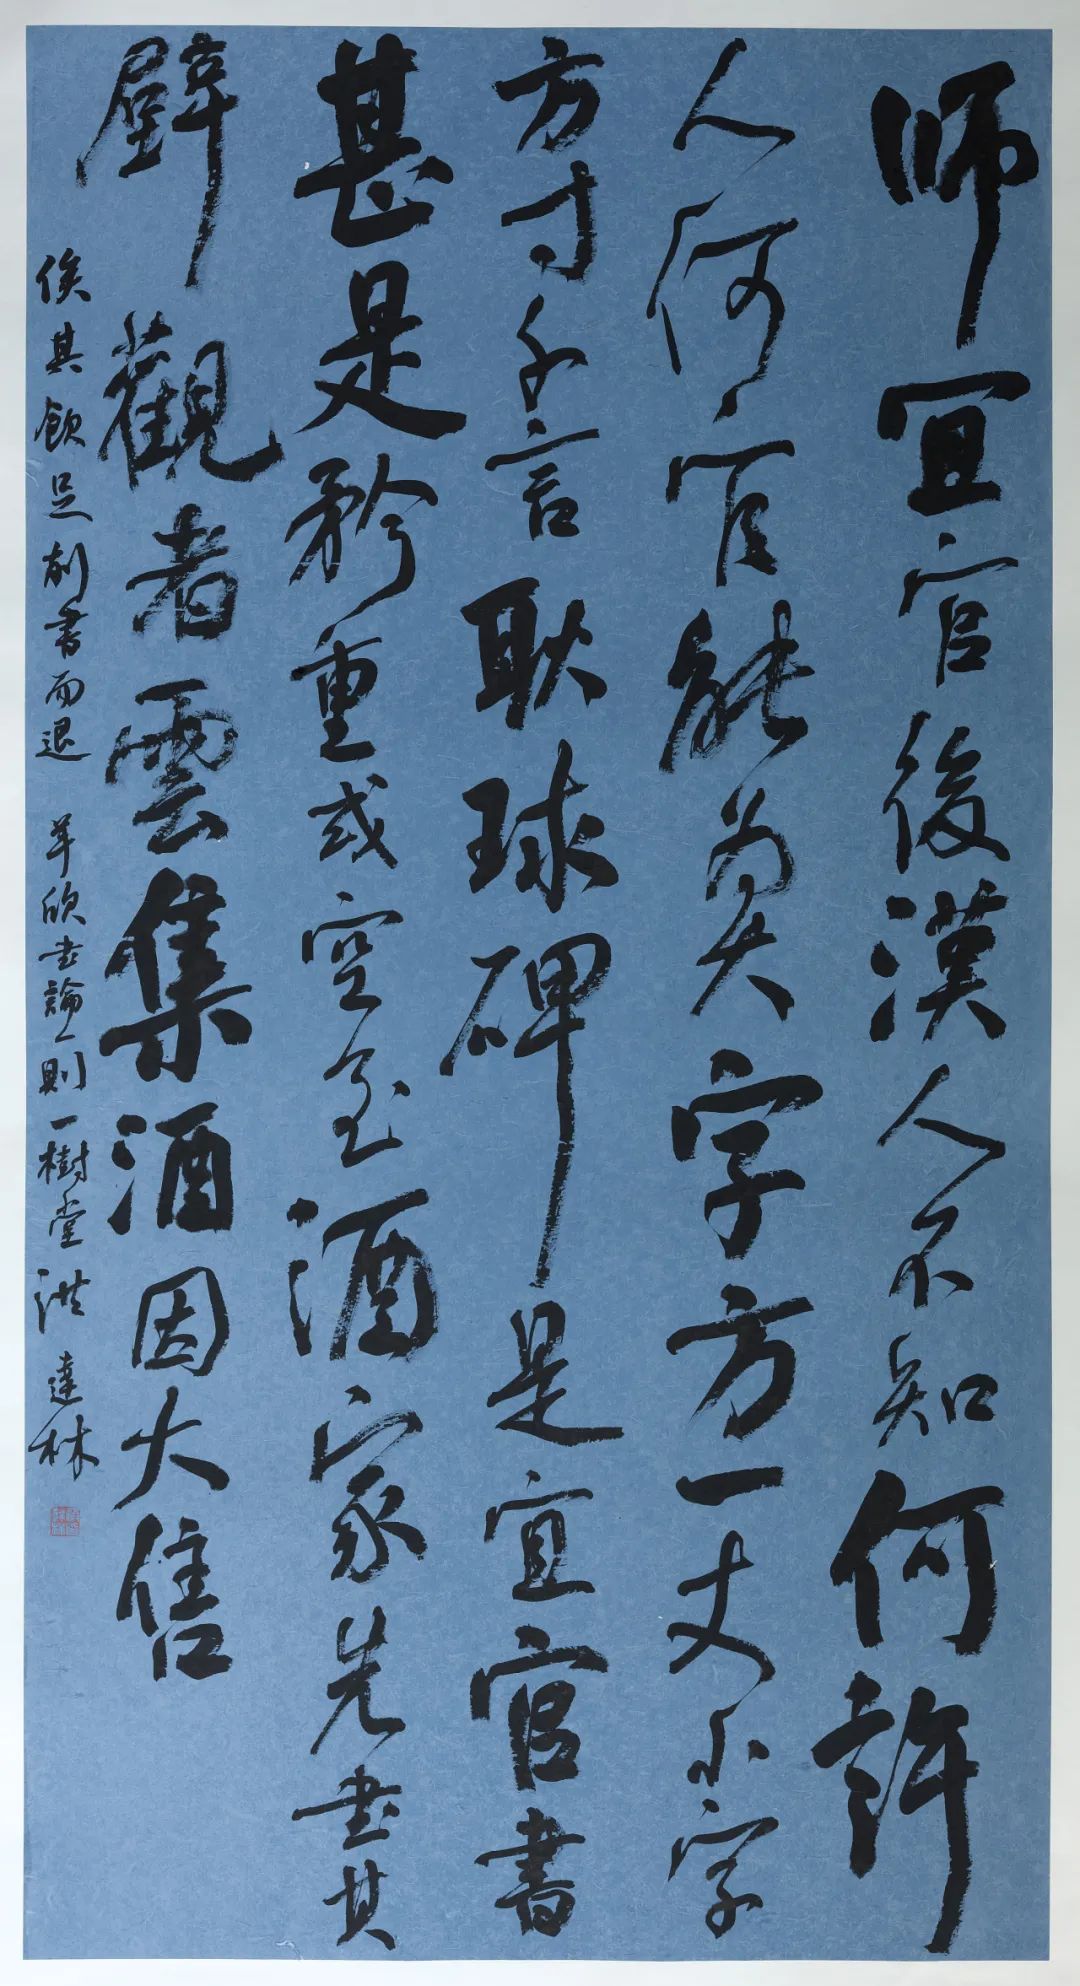 師宜官後漢人不知何許
人何官能爲大字方一丈小字
方寸千言耿球碑是宜官書
甚是矜重或空至酒家先書其
壁觀者雲集酒因大售
俟其飲足削書而退 羊欣書論一則一樹堂洪達林